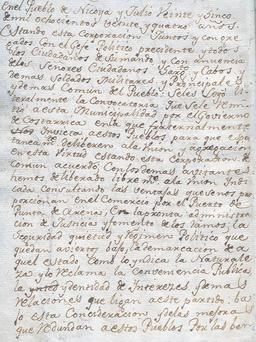 En el Pueblo de Nicoya y Julio Veinte y Sinco
de mil ochocientos veinte y quatro años.
Estando esta Corporacion Juntos y con
Gefe Politico precidente y todos
los Ciudadanos de Sumando y con anuencia
de los Señores Ciudadanos Cabos y
demas Soldados Militares y Principales
y demas Comun del Pueblo, Se les Leyó
la Convocatoria que Se le
tio a esta Municipalidad por el Govierno
de Costarrica en que fraternalmente
Invicta a estos Pueblos para que
deliberen a la Union y agregacion
en esta Virtud estando esta Corporacion de
comun acuerdo con los demas
hemos deliberado a la Union
cada Consultando las ventajas que
porcionan en el Comercio por el Puerto de
Punta de Arenas, Con la pronta administra
cion de Justicia y fomento de los Ramos, la
Seguridad quietud y Regimen Politico que
quedan bajo la demarcacion de a
quel estado Como lo yndica la Naturale
za y lo Reclama la Conveniencia Publica
la identidad de Interezes y demas
Relaciones que ligan aeste partido: ba
jo esta Consideracion y de las mejoras
que Redundan aestos Pueblos Por las